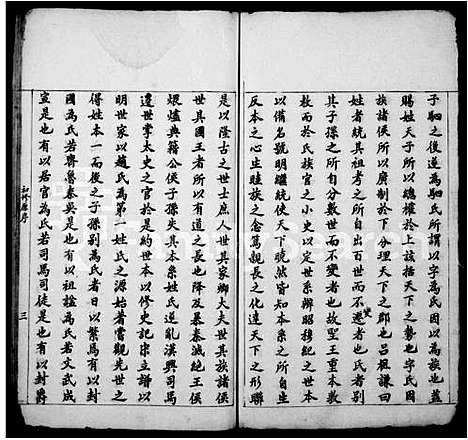 子駟之後逆為駟氏所謂以字為氏因以為族也蓋
賜姓天子所以總權於上該括天下之勢也字氏因
族諸侯所以廣制於下分理天下之鄰也呂祖謙曰
姓者統其祖考之所自出百世而不變者也氏者別
其子孫之所自分數世而不遷者也故聖王重本宗
教而於氏族官之小史以定世系辨昭穆紀之世本
以備名號明繼統使天下曉然皆知本系之所自生
反本之心生睦族之念篤親長之化達天下之形聯
是以隆古之世士庶人世其家卿大夫世其族諸侯
世其國王者所以有道之長也降及暴秦滅絶王侯
煨爐典籍公侯子孫失其本系姓氏逆亂漢興司馬
遷世掌太史之官於是約世本以修史記宗立譜以
明世家以趙氏為第一姓氏之源始者嘗觀先世之
得姓本一而後之子孫別為氏者日以繁焉有以
國為氏若齊魯秦吳是也有以祖謚為氏若文武成
宣是也有以居官為氏若司馬司徒是也有以封爵
初修原序
三